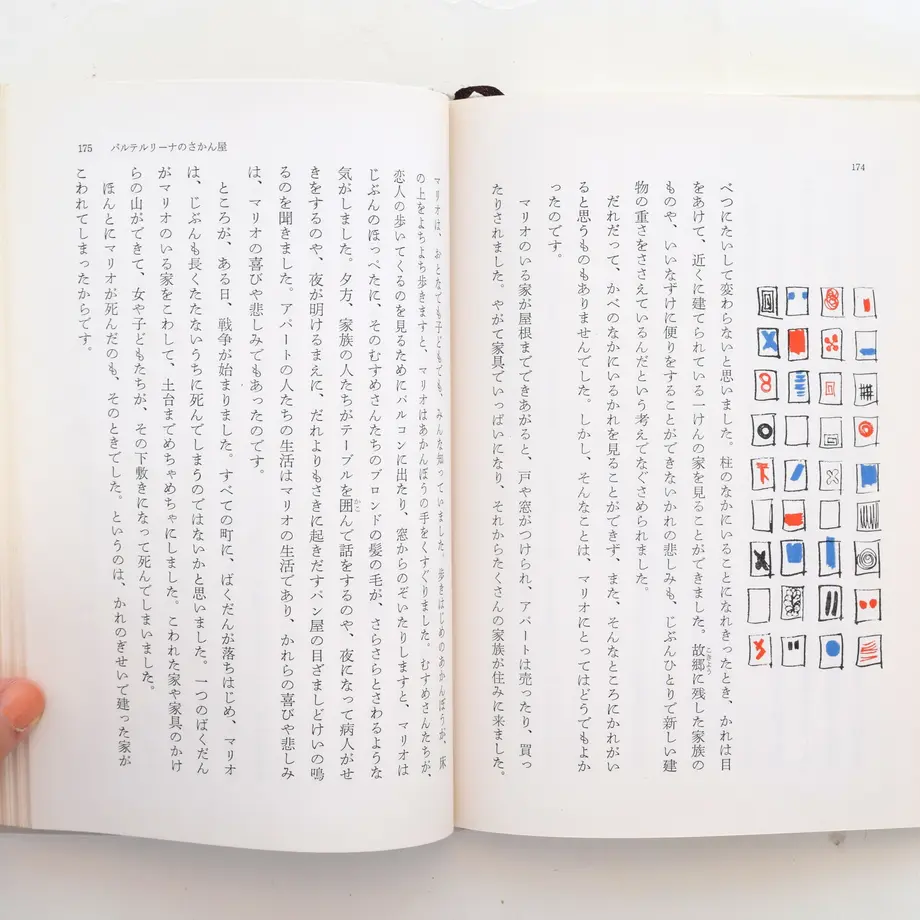 174
べつにたいして変わらないと思いました。柱のなかにいることになれきったとき、かれは目
をあけて、近くに建てられている一けんの家を見ることができました。故郷に残した家族の
こきよう
ものや、いいなずけに便りをすることができないかれの悲しみも、じぶんひとりで新しい建
物の重さをささえているんだという考えでなぐさめられました。
だれだって、かべのなかにいるかれを見ることができず、また、そんなところにかれがい
ると思うものもありませんでした。しかし、そんなことは、マリオにとってはどうでもよか
ったのです。
マリオのいる家が屋根までできあがると、戸や窓がつけられ、アパートは売ったり、買っ
たりされました。やがて家具でいっぱいになり、それからたくさんの家族が住みに来ました。
175 パルテルリーナのさかん屋
マリオは、おとなでも子どもでも、みんな知っていました。歩きはじめのあかんぼうが、床
の上をよちよち歩きますと、マリオはあかんぼうの手をくすぐりました。むすめさんたちが、
恋人の歩いてくるのを見るためにバルコンに出たり、窓からのぞいたりしますと、マリオは
じぶんのほっぺたに、そのむすめさんたちのブロンドの髪の毛が、さらさらとさわるような
気がしました。夕方、家族の人たちがテーブルを囲んで話をするのや、夜になって病人がせ
かこ
きをするのや、夜が明けるまえに、だれよりもさきに起きだすパン屋の目ざましどけいの鳴
るのを聞きました。アパートの人たちの生活はマリオの生活であり、かれらの喜びや悲しみ
は、マリオの喜びや悲しみでもあったのです。
ところが、ある日、戦争が始まりました。すべての町に、ばくだんが落ちはじめ、マリオ
は、じぶんも長くたたないうちに死んでしまうのではないかと思いました。一つのばくだん
がマリオのいる家をこわして、土台までめちゃめちゃにしました。こわれた家や家具のかけ
らの山ができて、女や子どもたちが、その下敷きになって死んでしまいました。
ほんとにマリオが死んだのも、そのときでした。というのは、かれのぎせいで建った家が
こわれてしまったからです。